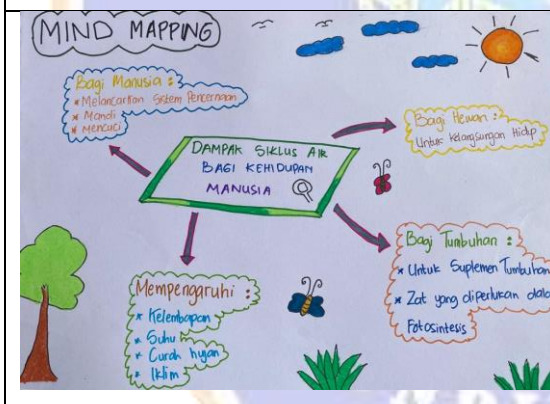 MIND MAPPING
Bagi Manusia :
* Melancarkan Sistem Pencernaan
* Mandi
* Mencuci
DAMPAK SIKLUS AIR
BAGI KEHIDUPAN
MANUSIA
Bagi Hewan :
Untuk Kelangsungan Hidup
Bagi Tumbuhan :
* Untuk Suplemen Tumbuhan
* Zat yang diperlukan dala
Fotosintesis
Mempengaruhi :
* Kelembapan
* Suhu
* Curah hujan
* Iklim